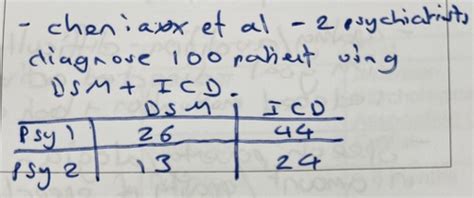 - cheniaxx et al - 2 psychiatrists
diagnose 100 patient using
DSM + ICD.
DSM ICD
Psy 1 26 44
Psy 2 13 24